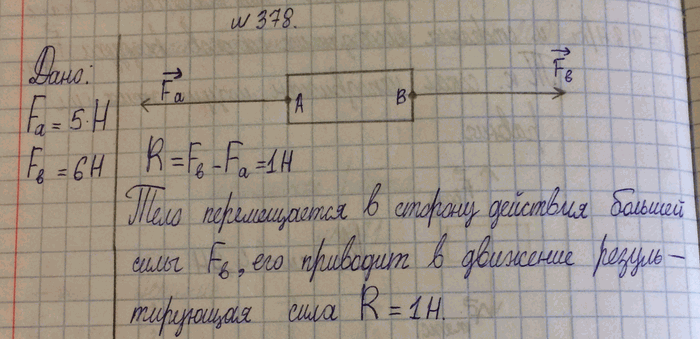 №378.
Дано:
Fa = 5·H
Fв = 6H
Fa
A
B
Fв
R = Fв - Fa = 1H
Тело перемещается в сторону действия большей
силы Fв, его приводит в движение резуль-
тирующая сила R = 1H.